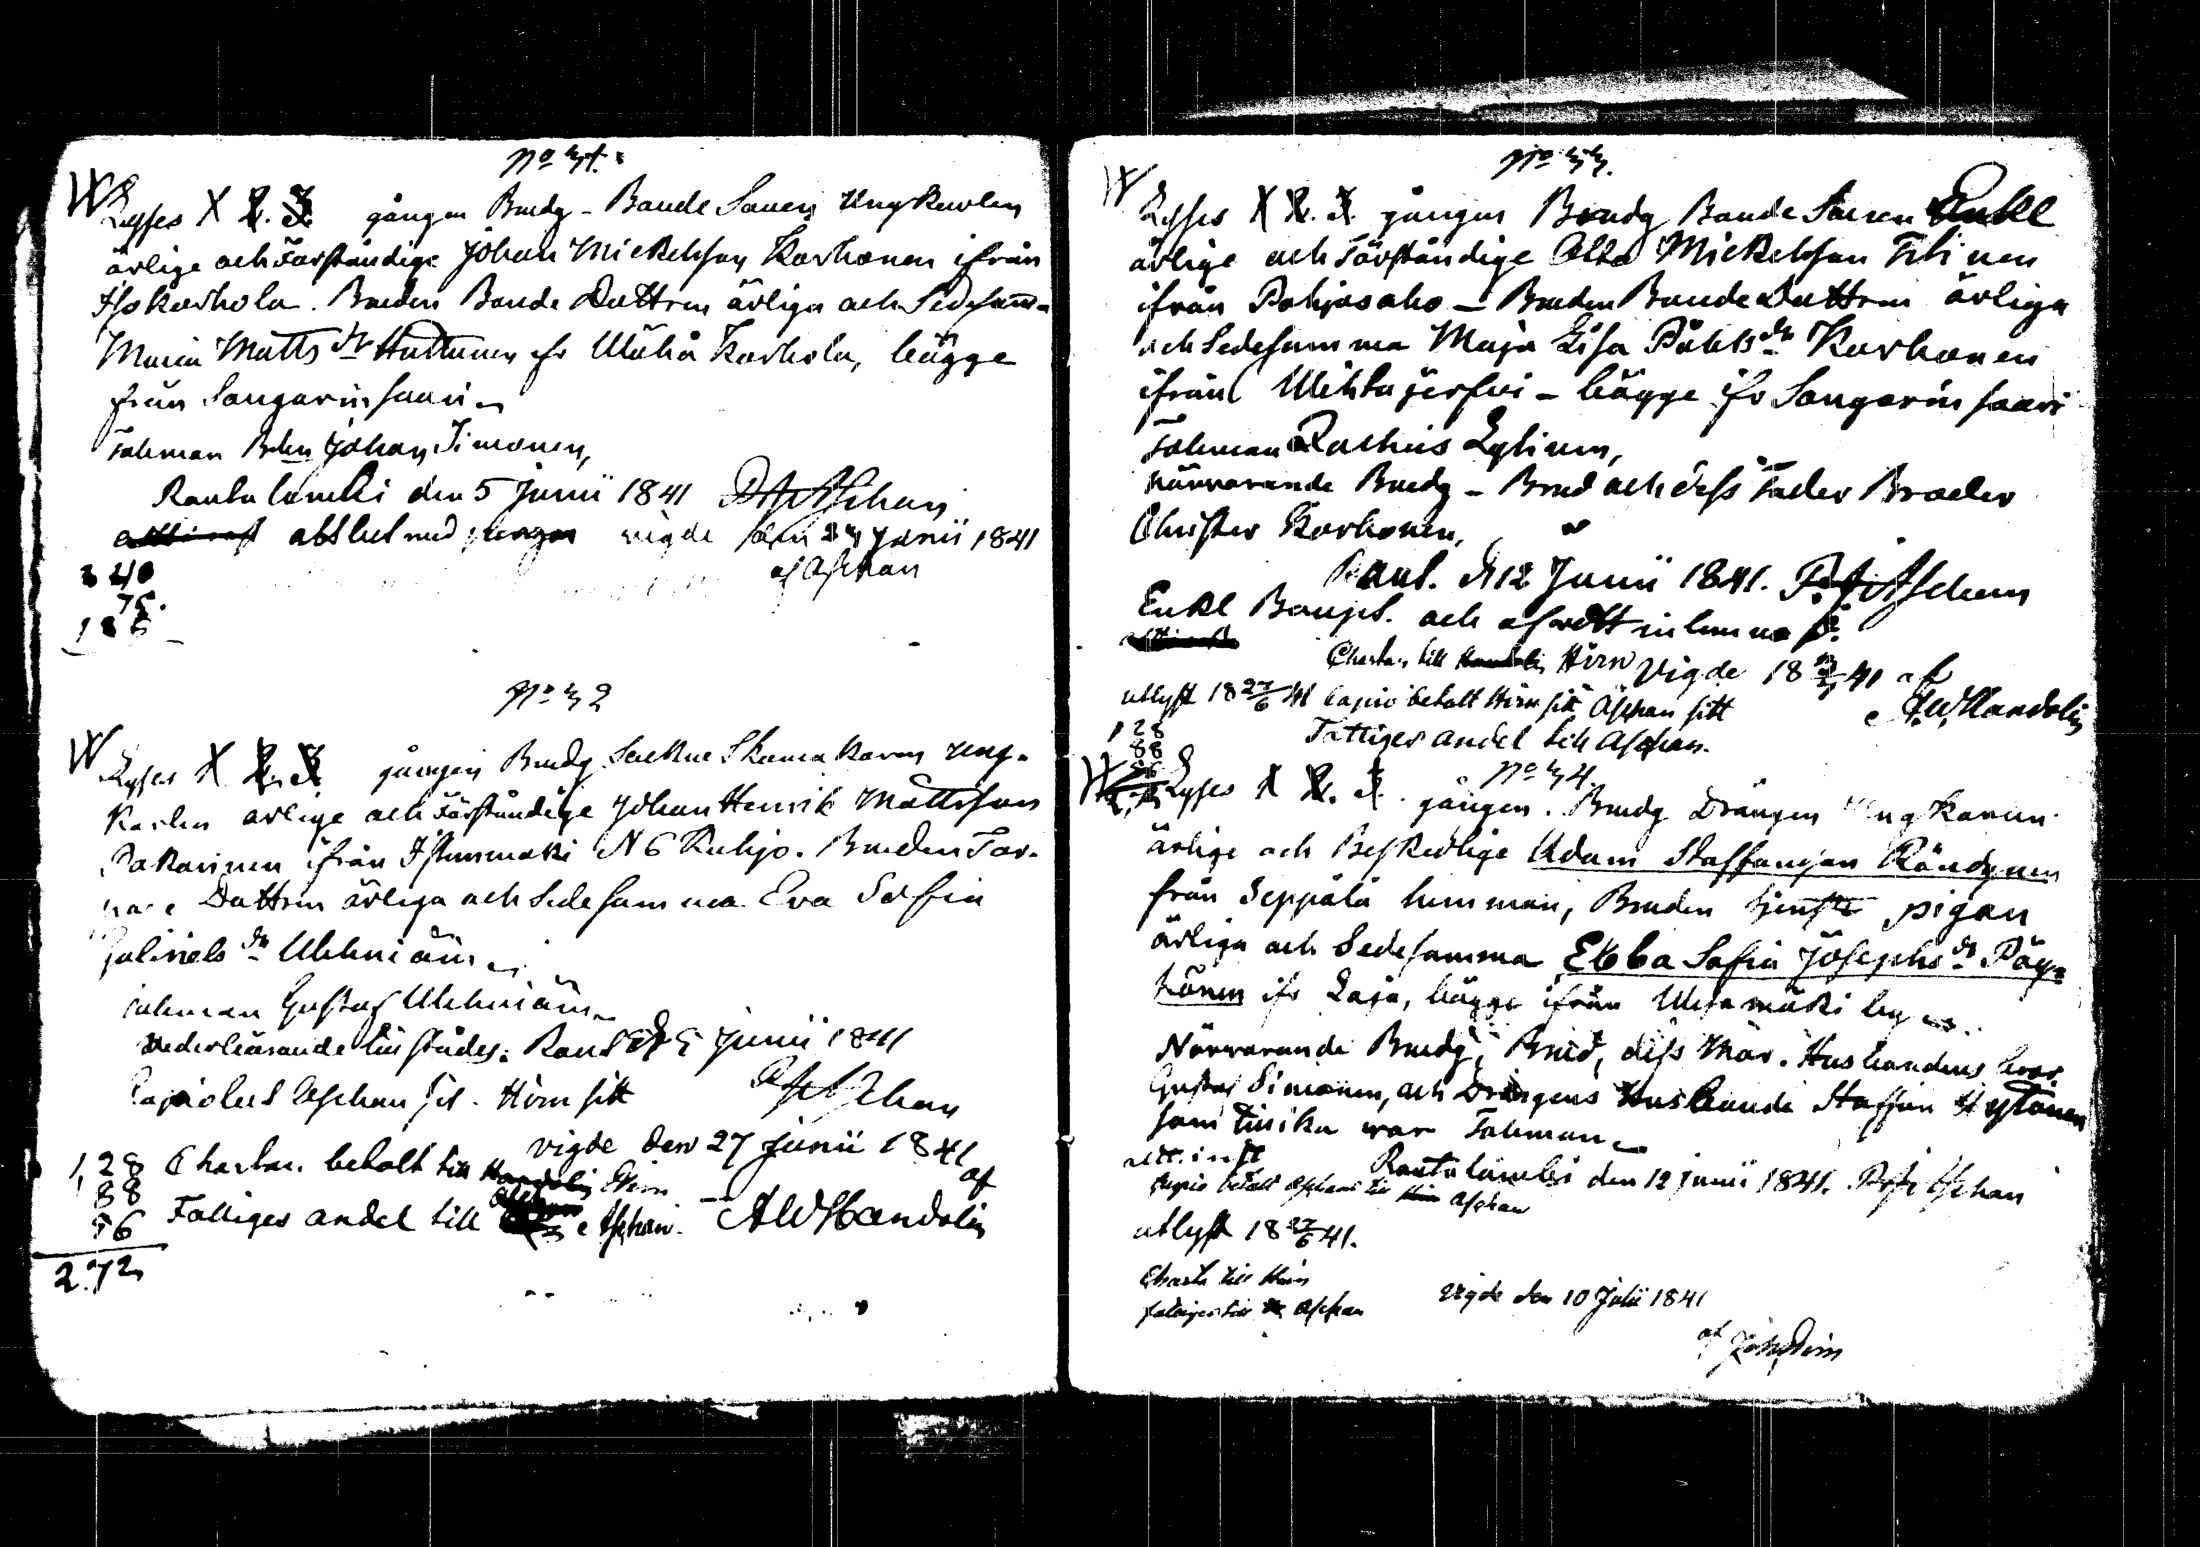 No 31.
W Lyses X 2. 3. gången Brudg - Bonde Sonen Ungkarlen
ärlige och Förståndige Johan Mickelsson Korhonen ifrån
Iso Korhola. Bruden Bonde Dottren ärliga och Sedesam=
Maria Matts dr Huttunen fr Wähä Korhola, bägge
från Songarinsaari
Talman Johan Simonen,
Rautalambi den 5 Junii 1841 Aschan
attest vigde den 24 Junii 1841
af Aschan
240
75.
No 32
W Lyses X 2. 3. gången Brudg Sockne Skomakaren Ung-
Karlen ärlige och Förståndige Johan Henrik Mattsson
Pakarinen ifrån Istunmäki N 6 Kuhjo. Bruden Tor-
pare Dottren ärliga och Sedesamma Eva Sofia
Gabriels dr Wehniäin
Talman Gustaf Wehniäin
Vederbörande tillstädes. Raut d 5 Junii 1841
Aschan sitt. Hirn sitt Aschan
vigde den 27 Junii 1841
af
1,28 Chartan betalt till Handolin Hirn
88
56 Fattiges andel till Aschan. AWHandolin
2.72
No 33.
W Lyses X 2. 3. gången Brudg Bonde Sonen Enkl
ärlige och Förståndige Otto Mickelsson
ifrån Pohjosaho - Bruden Bonde Dottren ärliga
och Sedesamma Maja Lisa Påhls dr Korhonen
ifrån Wihtajerfvi - bägge ifr Songarinsaari
Talman Zachris Lytinen,
närvarande Brudg - Brud och dess Fader Broder
Christer Korhonen,
Raut. d 12 Junii 1841. Aschan
Enkl och afvitt inlemna
Chartan till Handolin Hirn Vigde 41 af
utlyst 18 27/6 41 betalt Hirn sitt Aschan sitt AWHandolin
128 Fattiges andel till Aschan.
88
56
No 34.
W Lyses X 2. 3. gången. Brudg Drängen Ungkarlen
ärlige och Beskedlige Adam Staffansson Röndynen
från Seppälä hemman, Bruden tjenste pigan
ärliga och Sedesamma Ebba Sofia Josephs dr Pöy=
hönen ifr Laja, bägge ifrån Wesamäki by
Närvarande Brudg, Brud, dess Mor. Husbondens bror
Gustaf Simonen, och Drängens Husbonde Staffan Hytönen
som tillika war Talman
att. inst Rautalambi den 12 Junii 1841. Aschan
betalt Aschan till Hirn Aschan
utlyst 18 27/6 41.
Charta till Hirn
fattiges till Aschan vigde den 10 Julii 1841
af Jos. Hirn